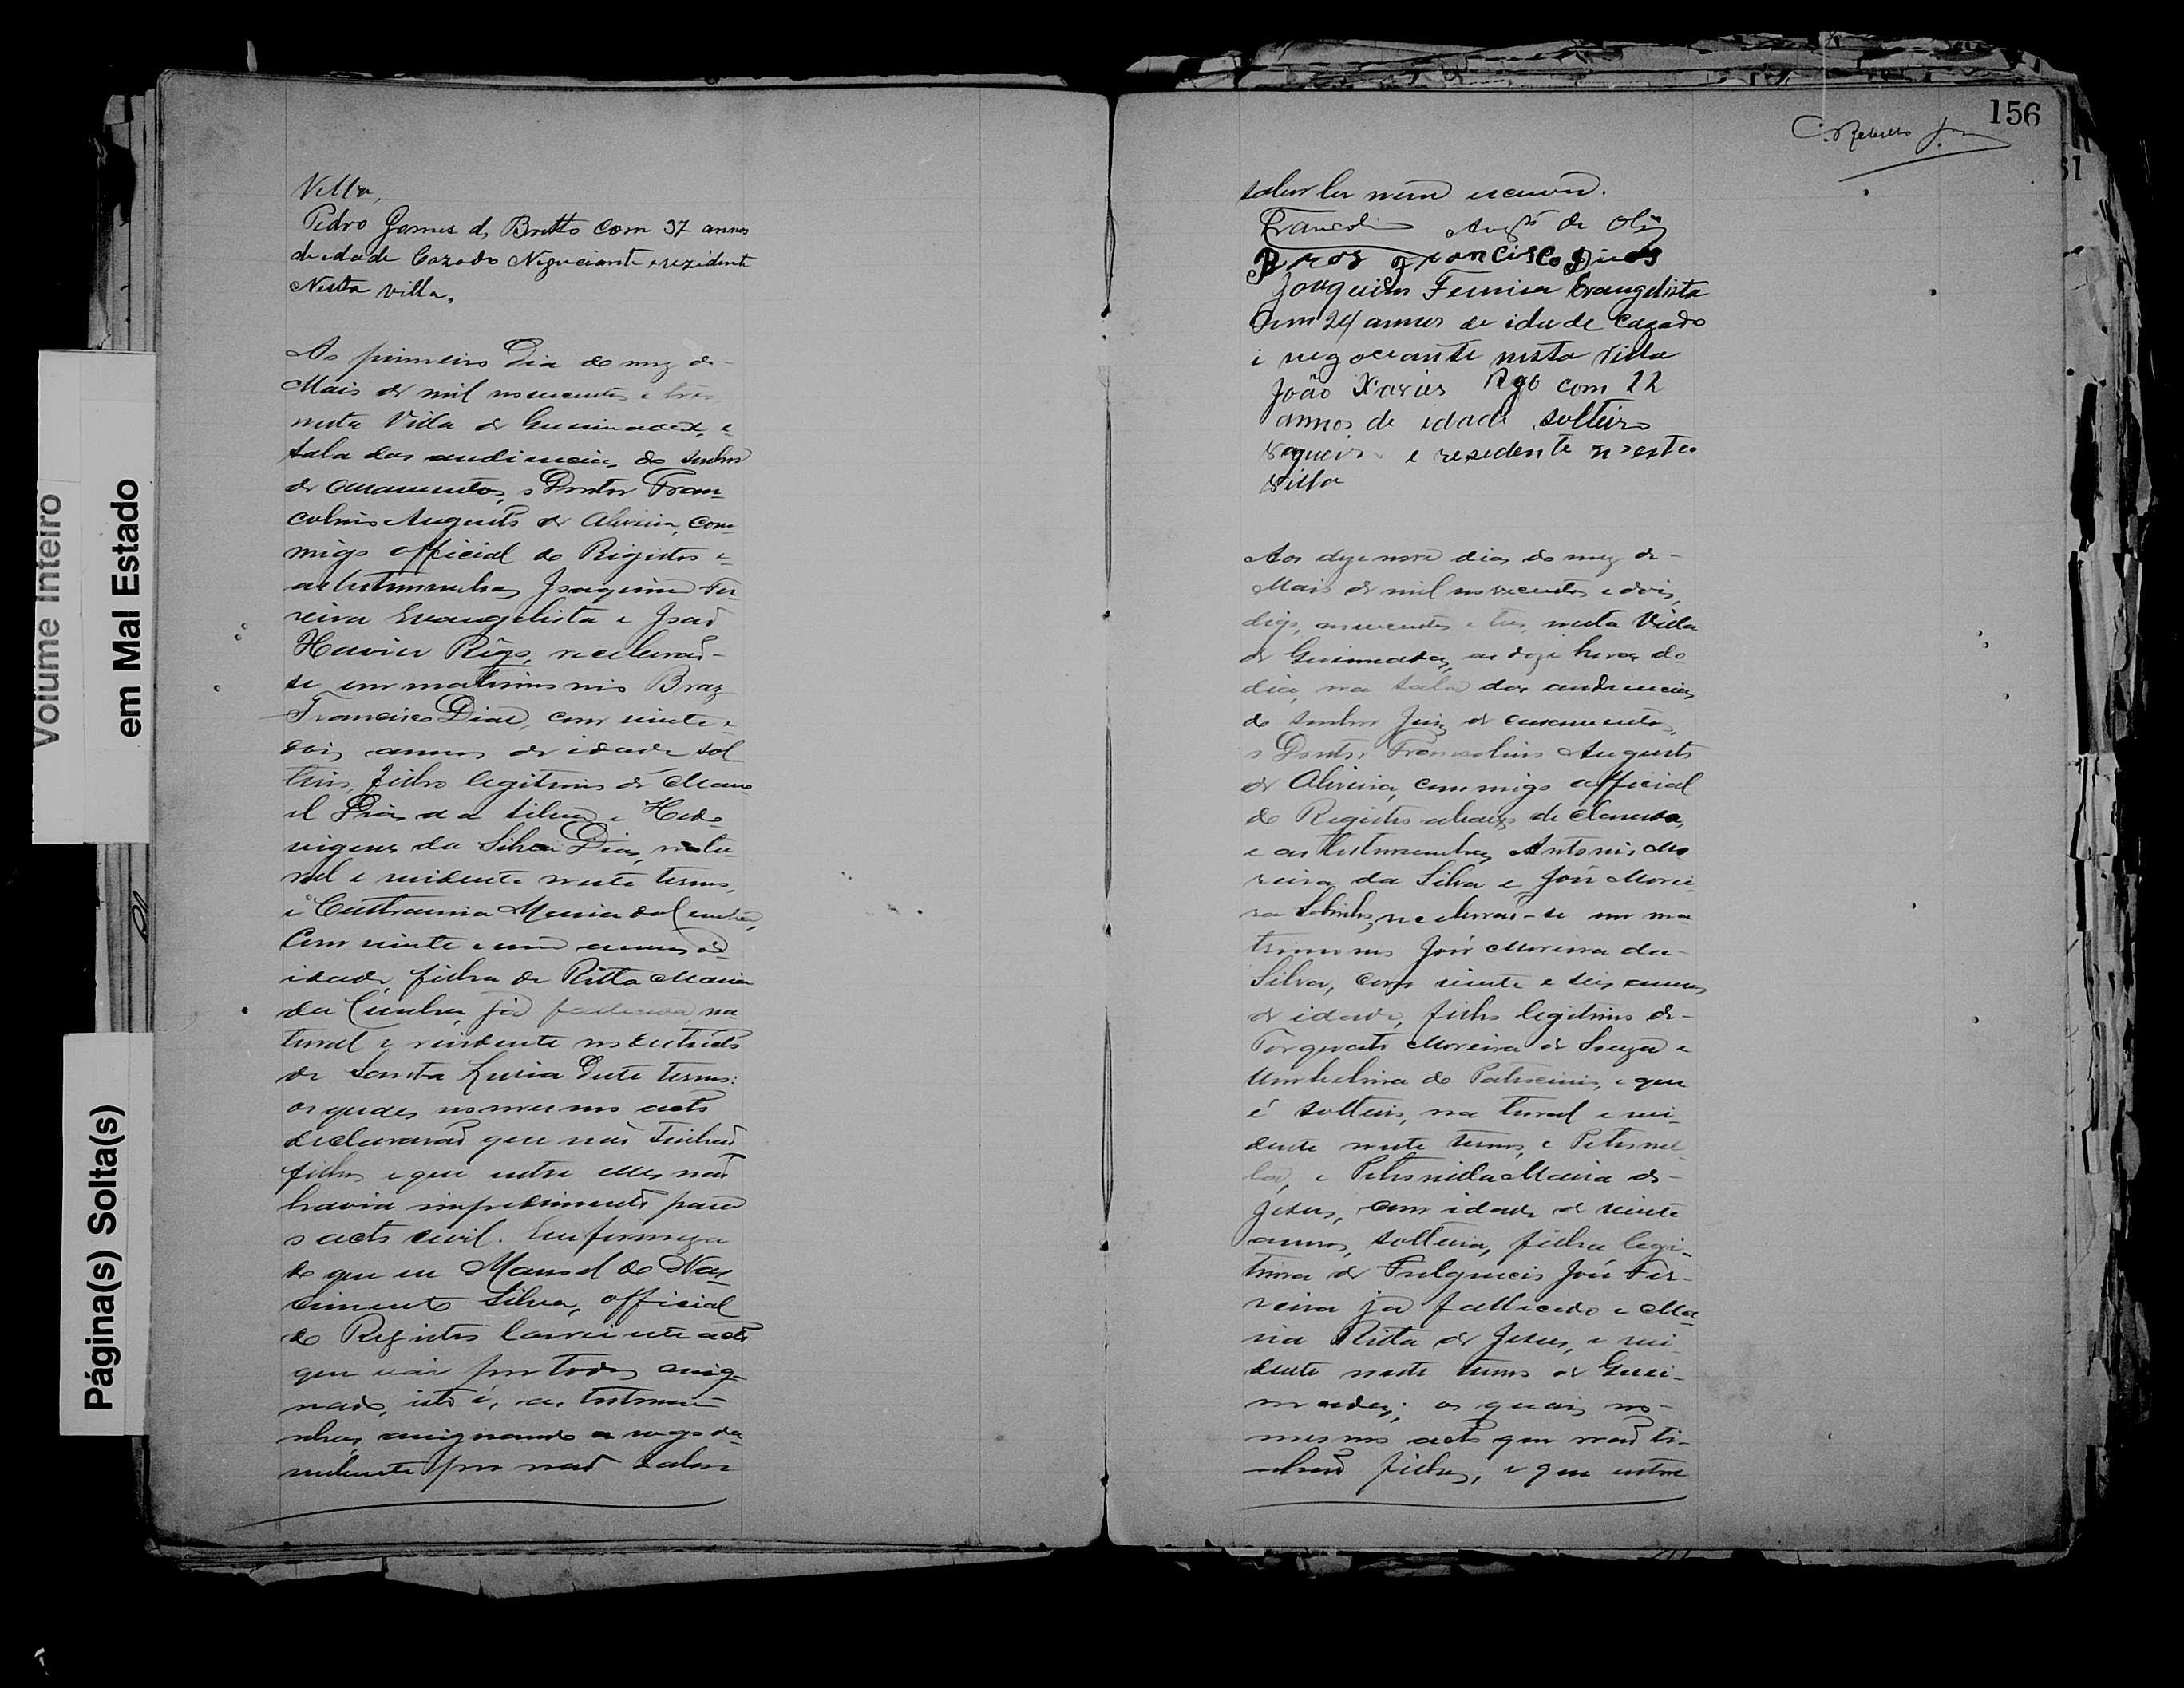 Villa,
Pedro Gomes de Britto com 37 annos
de idade Cazado Negociante e rezidente
Nesta villa.
Ao primeiro Dia do mez de
Maio de mil novecentos e tres
nesta Villa de e
Sala das audiencias do Senhor
de casamentos, o Doutor Fran-
colino Augusto de Oliveira, com-
migo official do Registro e
as testemunhas Joaquim Fer-
reira Evangelista e João
Havier Rêgo, receberão-
se em matrimonio Braz
Francisco Dias, com vinte e
dois annos de idade sol
teiro, filho legitimo de Mano
el Dias da Silva e Hedo-
vigens da Silva Dias, natu-
ral e residente neste termo,
e Maria da Cunha,
com vinte e um annos de
idade, filha de Ritta Maria
da Cunha, já fallecida, na-
tural e residente no districto
de Santa Luzia deste termo:
os quaes no mesmo acto
declararão que não tinhão
filhos e que entre elles não
havia impedimento para
o acto civil. Em firmeza
do que eu Manoel do Nas-
cimento Silva, official
do Registro lavrei este acto
que vai por todos assig-
nado, isto é, as testemu-
nhas, assignando a rogo da
nubente por não saber
Página(s) Solta(s)
Volume Inteiro
em Mal Estado
156
saber ler nem escrever.
Francolino Augto de Olivª
Bras Francisco Dias
Joaquim Ferreira Evangelista
Com 24 annos de idade Cazado
i negociante nesta Villa
João Xavier Rgo com 22
annos de idade solteiro
e rezedente n'esta
Villa
Aos dezenove dias do mez de
Maio de mil novecentos e dois,
digo, novecentos e tres, nesta Villa
de as doze horas do
dia, na sala das audiencias
do Senhor Juiz de casamentos,
o Doutor Francolino Augusto
de Oliveira, commigo official
do Registro abaixo declarado,
e as testemunhas Antonio Mo
reira da Silva e José Morei-
ra Sobinho, receberão-se em ma
trimonio José Moreira da
Silva, com vinte e seis annos
de idade, filho legitimo de
Torquato Moreira de Souza e
Umbelina do Patrocinio, e que
é solteiro, natural e resi-
dente neste termo, e Petronil
la, e Petronilla Maria de
Jesus, com idade de vinte
annos, solteira, filha legi-
tima de Fulgencio José Fer-
reira já fallecido e Ma-
ria Ritta de Jesus, e resi-
dente neste termo de
os quais no
mesmo acto que não ti-
nhão filhos, e que entre